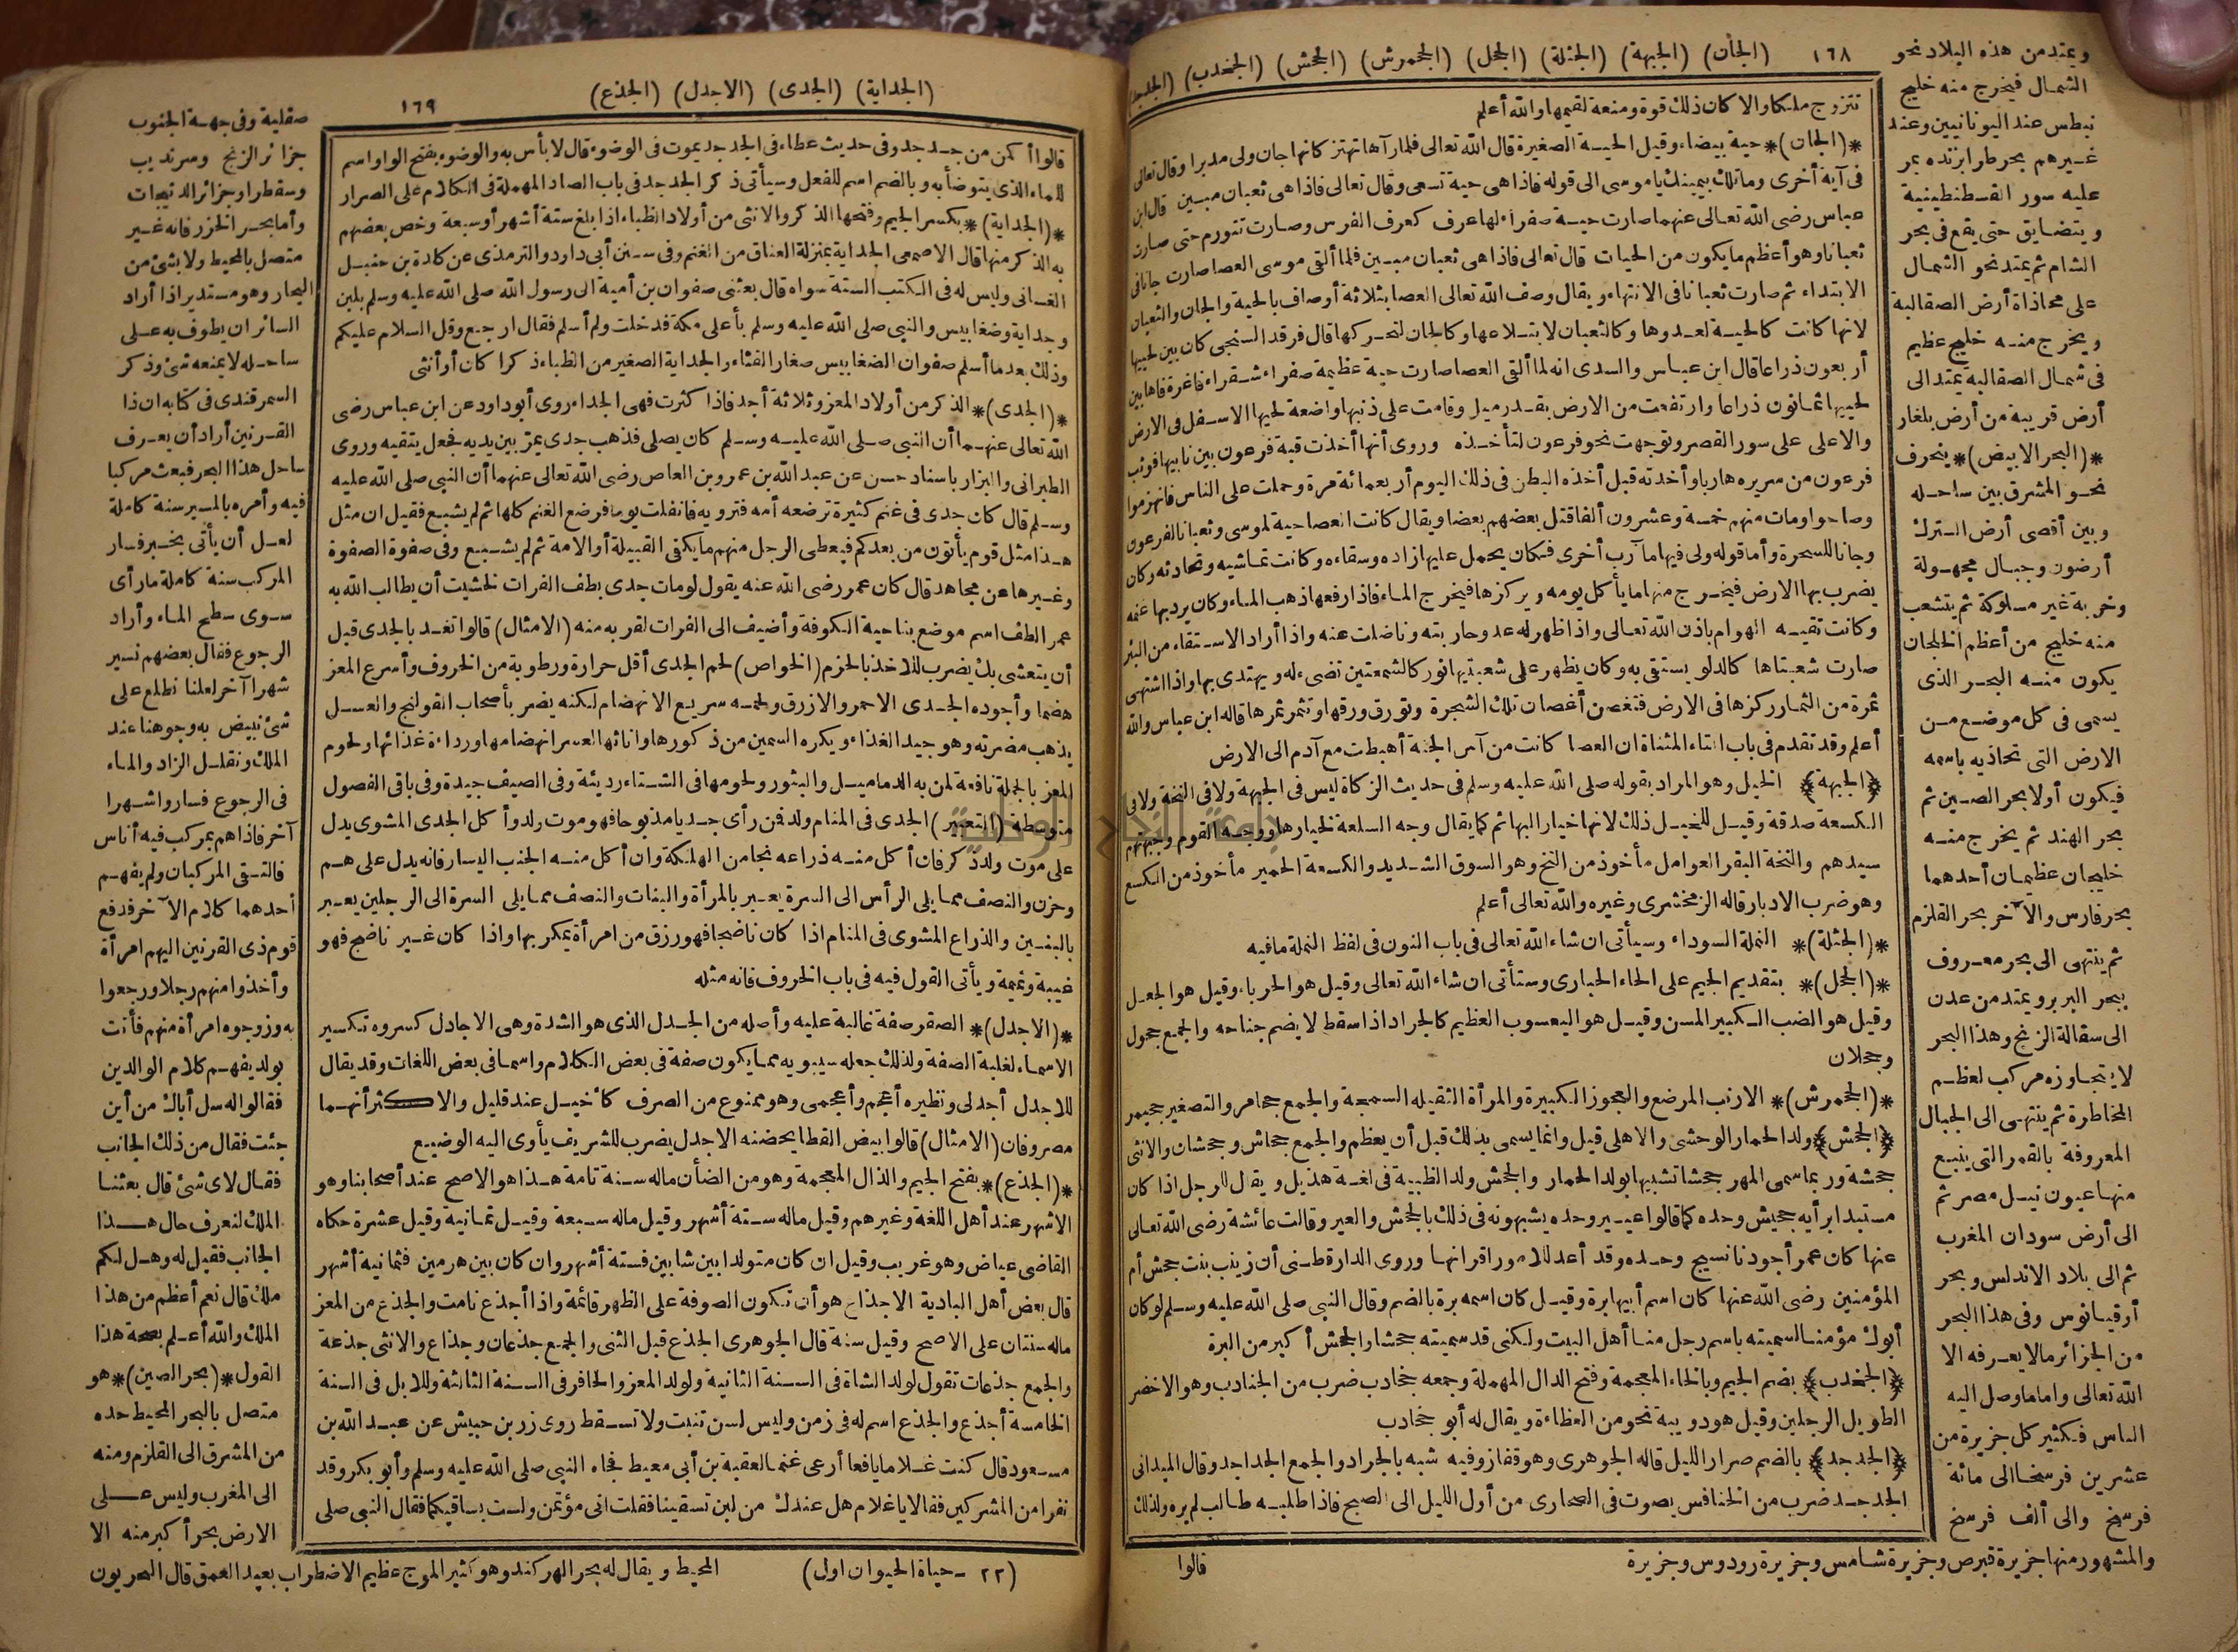 ١٦٨ (الجان) (الجبهة) (الجثلة) (الجحل) (الجحمرش) (الجحش) (الجخدب) (الجدجد)
تتزوج ملكا والا كان ذلك قوة ومنعة لقيمها والله أعلم
*(الجان)* حية بيضاء وقيل الحية الصغيرة قال الله تعالى فلما رآها تهتز كانها جان ولى مدبرا وقال تعالى
فى آية أخرى وما تلك بيمينك يا موسى الى قوله فاذا هى حية تسعى وقال تعالى فاذا هى ثعبان مبين قال ابن
عباس رضى الله تعالى عنهما صارت حية صفراء لها عرف كعرف الفرس وصارت تتورم حتى صارت
ثعبانا وهو أعظم ما يكون من الحيات قال تعالى فاذا هى ثعبان مبين فلما ألقى موسى العصا صارت جانا فى
الابتداء ثم صارت ثعبانا فى الانتهاء ويقال وصف الله تعالى العصا بثلاثة أوصاف بالحية والجان والثعبان
لانها كانت كالحية لعدوها وكالثعبان لابتلاعها وكالجان لتحركها قال فرقد السنجى كان بين لحييها
أربعون ذراعا قال ابن عباس والسدى انه لما ألقى العصا صارت حية عظيمة صفراء شقراء فاغرة فاها بين
لحييها ثمانون ذراعا وارتفعت من الارض بقدر ميل وقامت على ذنبها واضعة لحيها الاسفل فى الارض
والاعلى على سور القصر وتوجهت نحو فرعون لتأخذه وروى أنها أخذت قبة فرعون بين نابيها فوثب
فرعون من سريره هاربا وأحدث قبل أخذه البطن فى ذلك اليوم أربعمائة مرة وحملت على الناس فانهزموا
وصاحوا ومات منهم خمسة وعشرون ألفا قتل بعضهم بعضا ويقال كانت العصا حية لموسى وثعبانا لفرعون
وجانا للسحرة وأما قوله ولى فيها مآرب أخرى فكان يحمل عليها زاده وسقاءه وكانت تماشيه وتحادثه وكان
يضرب بها الارض فيخرج منها ما يأكل يومه ويركزها فيخرج الماء فاذا رفعها ذهب الماء وكان يرد بها غنمه
وكانت تقيه الهوام باذن الله تعالى واذا ظهر له عدو حاربته وناضلت عنه واذا أراد الاستقاء من البئر
صارت شعبتاها كالدلو يستقى به وكان يظهر على شعبتيها نور كالشمعتين تضىء له ويهتدى بها واذا اشتهى
ثمرة من الثمار ركزها فى الارض فتغصن أغصان تلك الشجرة وتورق ورقها وتثمر ثمرها قاله ابن عباس والله
أعلم وقد تقدم فى باب التاء المثناة ان العصا كانت من آس الجنة أهبطت مع آدم الى الارض
﴿الجبهة﴾ الخيل وهو المراد بقوله صلى الله عليه وسلم فى حديث الزكاة ليس فى الجبهة ولا فى النخة ولا فى
الكسعة صدقة وقيل للخيل ذلك لانها خيار البهائم كما يقال وجه السلعة لخيارها ووجه القوم وجبهتهم
سيدهم والنخة البقر العوامل مأخوذ من النخ وهو السوق الشديد والكسعة الحمير مأخوذ من الكسع
وهو ضرب الادبار قاله الزمخشرى وغيره والله تعالى أعلم
*(الجثلة)* النملة السوداء وسيأتى ان شاء الله تعالى فى باب النون فى لفظ النملة ما فيه
*(الجحل)* بتقديم الجيم على الحاء الحبارى وستأتى ان شاء الله تعالى وقيل هو الحرباء وقيل هو الجعل
وقيل هو الضب الكبير المسن وقيل هو اليعسوب العظيم كالجراد اذا سقط لا يضم جناحه والجمع جحول
وجحلان
*(الجحمرش)* الارنب المرضع والعجوز الكبيرة والمرأة الثقيلة السمجة والجمع جحامر والتصغير جحيمر
﴿الجحش﴾ ولد الحمار الوحشى والاهلى قيل وانما يسمى بذلك قبل أن يعظم والجمع جحاش وجحشان والانثى
جحشة وربما سمى المهر جحشا تشبيها بولد الحمار والجحش ولد الظبية فى لغة هذيل ويقال للرجل اذا كان
مستبدا برأيه جحيش وحده كما قالوا عيير وحده يشبهونه فى ذلك بالجحش والعير وقالت عائشة رضى الله تعالى
عنها كان عمر أجودنا نسيج وحده وقد أعد للامور اقرانها وروى الدارقطنى أن زينب بنت جحش أم
المؤمنين رضى الله عنها كان اسم أبيها برة وقيل كان اسمه برة بالضم وقال النبى صلى الله عليه وسلم لو كان
أبوك مؤمنا لسميته باسم رجل منا أهل البيت ولكنى قد سميته جحشا والجحش أكبر من البرة
﴿الجخدب﴾ بضم الجيم وبالخاء المعجمة وفتح الدال المهملة وجمعه جخادب ضرب من الجنادب وهو الاخضر
الطويل الرجلين وقيل هو دويبة نحو من العظاءة ويقال له أبو جخادب
﴿الجدجد﴾ بالضم صرار الليل قاله الجوهرى وهو قفاز وفيه شبه بالجراد والجمع الجداجد وقال الميدانى
الجدجد ضرب من الخنافس يصوت فى الصحارى من أول الليل الى الصبح فاذا طلبه طالب لم يره ولذلك
قالوا
ويمتد من هذه البلاد نحو
الشمال فيخرج منه خليج
نيطس عند اليونانيين وعند
غيرهم بحر طرابزنده يمر
عليه سور القسطنطينية
ويتضايق حتى يقع فى بحر
الشام ثم يمتد نحو الشمال
على محاذاة أرض الصقالبة
ويخرج منه خليج عظيم
فى شمال الصقالبة يمتد الى
أرض قريبة من أرض بلغار
*(البحر الابيض)* ينحرف
نحو المشرق بين ساحله
وبين أقصى أرض الترك
أرضون وجبال مجهولة
وخربة غير مسلوكة ثم يتشعب
منه خليج من أعظم الخلجان
يكون منه البحر الذى
يسمى فى كل موضع من
الارض التى تحاذيه باسمه
فيكون أولا بحر الصين ثم
بحر الهند ثم يخرج منه
خليجان عظيمان أحدهما
بحر فارس والآخر بحر القلزم
ثم ينتهى الى بحر معروف
ببحر البربر ويمتد من عدن
الى سفالة الزنج وهذا البحر
لا يتجاوزه مركب لعظم
المخاطرة ثم ينتهى الى الجبال
المعروفة بالقمر التى ينبع
منها عيون نيل مصر ثم
الى أرض سودان المغرب
ثم الى بلاد الاندلس وبحر
أوقيانوس وفى هذا البحر
من الجزائر ما لا يعرفه الا
الله تعالى واما ما وصل اليه
الناس فكثير كل جزيرة من
عشرين فرسخا الى مائة
فرسخ والى ألف فرسخ
والمشهور منها جزيرة قبرص وجزيرة شامس وجزيرة رودوس وجزيرة
(الجداية) (الجدى) (الاجدل) (الجذع) ١٦٩
قالوا أكمن من جدجد وفى حديث عطاء فى الجدجد يموت فى الوضوء قال لا بأس به والوضوء بفتح الواو اسم
للماء الذى يتوضأ به وبالضم اسم للفعل وسيأتى ذكر الجدجد فى باب الصاد المهملة فى الكلام على الصرار
*(الجداية)* بكسر الجيم وفتحها الذكر والانثى من أولاد الظباء اذا بلغ ستة أشهر أو سبعة وخص بعضهم
به الذكر منها قال الاصمعى الجداية بمنزلة العناق من الغنم وفى سنن أبى داود والترمذى عن كلدة بن حنبل
الغسانى وليس له فى الكتب الستة سواه قال بعثنى صفوان بن أمية الى رسول الله صلى الله عليه وسلم بلبن
وجداية وضغابيس والنبى صلى الله عليه وسلم بأعلى مكة فدخلت ولم أسلم فقال ارجع وقل السلام عليكم
وذلك بعد ما أسلم صفوان الضغابيس صغار القثاء والجداية الصغير من الظباء ذكرا كان أو أنثى
*(الجدى)* الذكر من أولاد المعز وثلاثة أجد فاذا كثرت فهى الجداء روى أبو داود عن ابن عباس رضى
الله تعالى عنهما أن النبى صلى الله عليه وسلم كان يصلى فذهب جدى يمر بين يديه فجعل يتقيه وروى
الطبرانى والبزار باسناد حسن عن عبد الله بن عمرو بن العاص رضى الله تعالى عنهما أن النبى صلى الله عليه
وسلم قال كان جدى فى غنم كثيرة ترضعه أمه فترويه فانفلت يوما فرضع الغنم كلها ثم لم يشبع فقيل ان مثل
هذا مثل قوم يأتون من بعدكم فيعطى الرجل منهم ما يكفى القبيلة أو الامة ثم لم يشبع وفى صفوة الصفوة
وغيرها عن مجاهد قال كان عمر رضى الله عنه يقول لو مات جدى بطف الفرات لخشيت أن يطالب الله به
عمر الطف اسم موضع بناحية الكوفة وأضيف الى الفرات لقربه منه (الامثال) قالوا تغد بالجدى قبل
أن يتعشى بك يضرب للاخذ بالحزم (الخواص) لحم الجدى أقل حرارة ورطوبة من الخروف وأسرع المعز
هضما وأجوده الجدى الاحمر والازرق ولحمه سريع الانهضام لكنه يضر بأصحاب القولنج والعسل
يذهب مضرته وهو جيد الغذاء ويكره السمين من ذكورها واناثها لعسر انهضامها ورداءة غذائها ولحوم
المعز بالجملة نافعة لمن به الدماميل والبثور ولحومها فى الشتاء رديئة وفى الصيف جيدة وفى باقى الفصول
متوسطة (التعبير) الجدى فى المنام ولد فمن رأى جديا مذبوحا فهو موت ولد وأكل الجدى المشوى يدل
على موت ولد ذكر فان أكل منه ذراعه نجا من الهلكة وان أكل منه الجنب اليسار فانه يدل على هم
وحزن والنصف مما يلى الرأس الى السرة يعبر بالمرأة والبنات والنصف مما يلى السرة الى الرجلين يعبر
بالبنين والذراع المشوى فى المنام اذا كان ناضجا فهو رزق من امرأة يمكر بها واذا كان غير ناضج فهو
غيبة ونميمة ويأتى القول فيه فى باب الخروف فانه مثله
*(الاجدل)* الصقر صفة غالبة عليه وأصله من الجدل الذى هو الشدة وهى الاجادل كسروه تكسير
الاسماء لغلبة الصفة ولذلك جعله سيبويه مما يكون صفة فى بعض الكلام واسما فى بعض اللغات وقد يقال
للاجدل أجدلى ونظيره أعجم وأعجمى وهو ممنوع من الصرف كأخيل عند قليل والاكثر أنهما
مصروفان (الامثال) قالوا بيض القطا يحضنه الاجدل يضرب للشريف يأوى اليه الوضيع
*(الجذع)* بفتح الجيم والذال المعجمة وهو من الضأن ماله سنة تامة هذا هو الاصح عند أصحابنا وهو
الاشهر عند أهل اللغة وغيرهم وقيل ماله ستة أشهر وقيل ماله سبعة وقيل ثمانية وقيل عشرة حكاه
القاضى عياض وهو غريب وقيل ان كان متولدا بين شابين فستة أشهر وان كان بين هرمين فثمانية أشهر
قال بعض أهل البادية الاجذاع هو أن تكون الصوفة على الظهر قائمة واذا أجذع نامت والجذع من المعز
ماله سنتان على الاصح وقيل سنة قال الجوهرى الجذع قبل الثنى والجمع جذعان وجذاع والانثى جذعة
والجمع جذعات تقول لولد الشاة فى السنة الثانية ولولد المعز والحافر فى السنة الثالثة وللابل فى السنة
الخامسة أجذع والجذع اسم له فى زمن وليس لسن تنبت ولا تسقط روى زر بن حبيش عن عبد الله بن
مسعود قال كنت غلاما يافعا أرعى غنما لعقبة بن أبى معيط فجاء النبى صلى الله عليه وسلم وأبو بكر وقد
نفرا من المشركين فقالا يا غلام هل عندك من لبن تسقينا فقلت انى مؤتمن ولست بساقيكما فقال النبى صلى
(٢٢ - حياة الحيوان اول)
صقلية وفى جهة الجنوب
جزائر الزنج وسرنديب
وسقطرا وجزائر الديبجات
وأما بحر الخزر فانه غير
متصل بالمحيط ولا بشئ من
البحار وهو مستدير اذا أراد
السائر ان يطوف به على
ساحله لا يمنعه شئ وذكر
السمرقندى فى كتابه ان ذا
القرنين أراد أن يعرف
ساحل هذا البحر فبعث مركبا
فيه وأمره بالمسير سنة كاملة
لعل أن يأتى بخبر فسار
المركب سنة كاملة ما رأى
سوى سطح الماء وأراد
الرجوع فقال بعضهم نسير
شهرا آخر لعلنا نطلع على
شئ نبيض به وجوهنا عند
الملك ونقلل الزاد والماء
فى الرجوع فساروا شهرا
آخر فاذا هم بمركب فيه أناس
فالتقى المركبان ولم يفهم
أحدهما كلام الآخر فدفع
قوم ذى القرنين اليهم امرأة
وأخذوا منهم رجلا ورجعوا
به وزوجوه امرأة منهم فأتت
بولد يفهم كلام الوالدين
فقالوا له سل أباك من أين
جئت فقال من ذلك الجانب
فقال لاى شئ قال بعثنا
الملك لنعرف حال هذا
الجانب فقيل له وهل لكم
ملك قال نعم أعظم من هذا
الملك والله أعلم بصحة هذا
القول *(بحر الصين)* هو
متصل بالبحر المحيط حده
من المشرق الى القلزم ومنه
الى المغرب وليس على
الارض بحر أكبر منه الا
المحيط ويقال له بحر الهركند وهو كثير الموج عظيم الاضطراب بعيد العمق قال البحريون